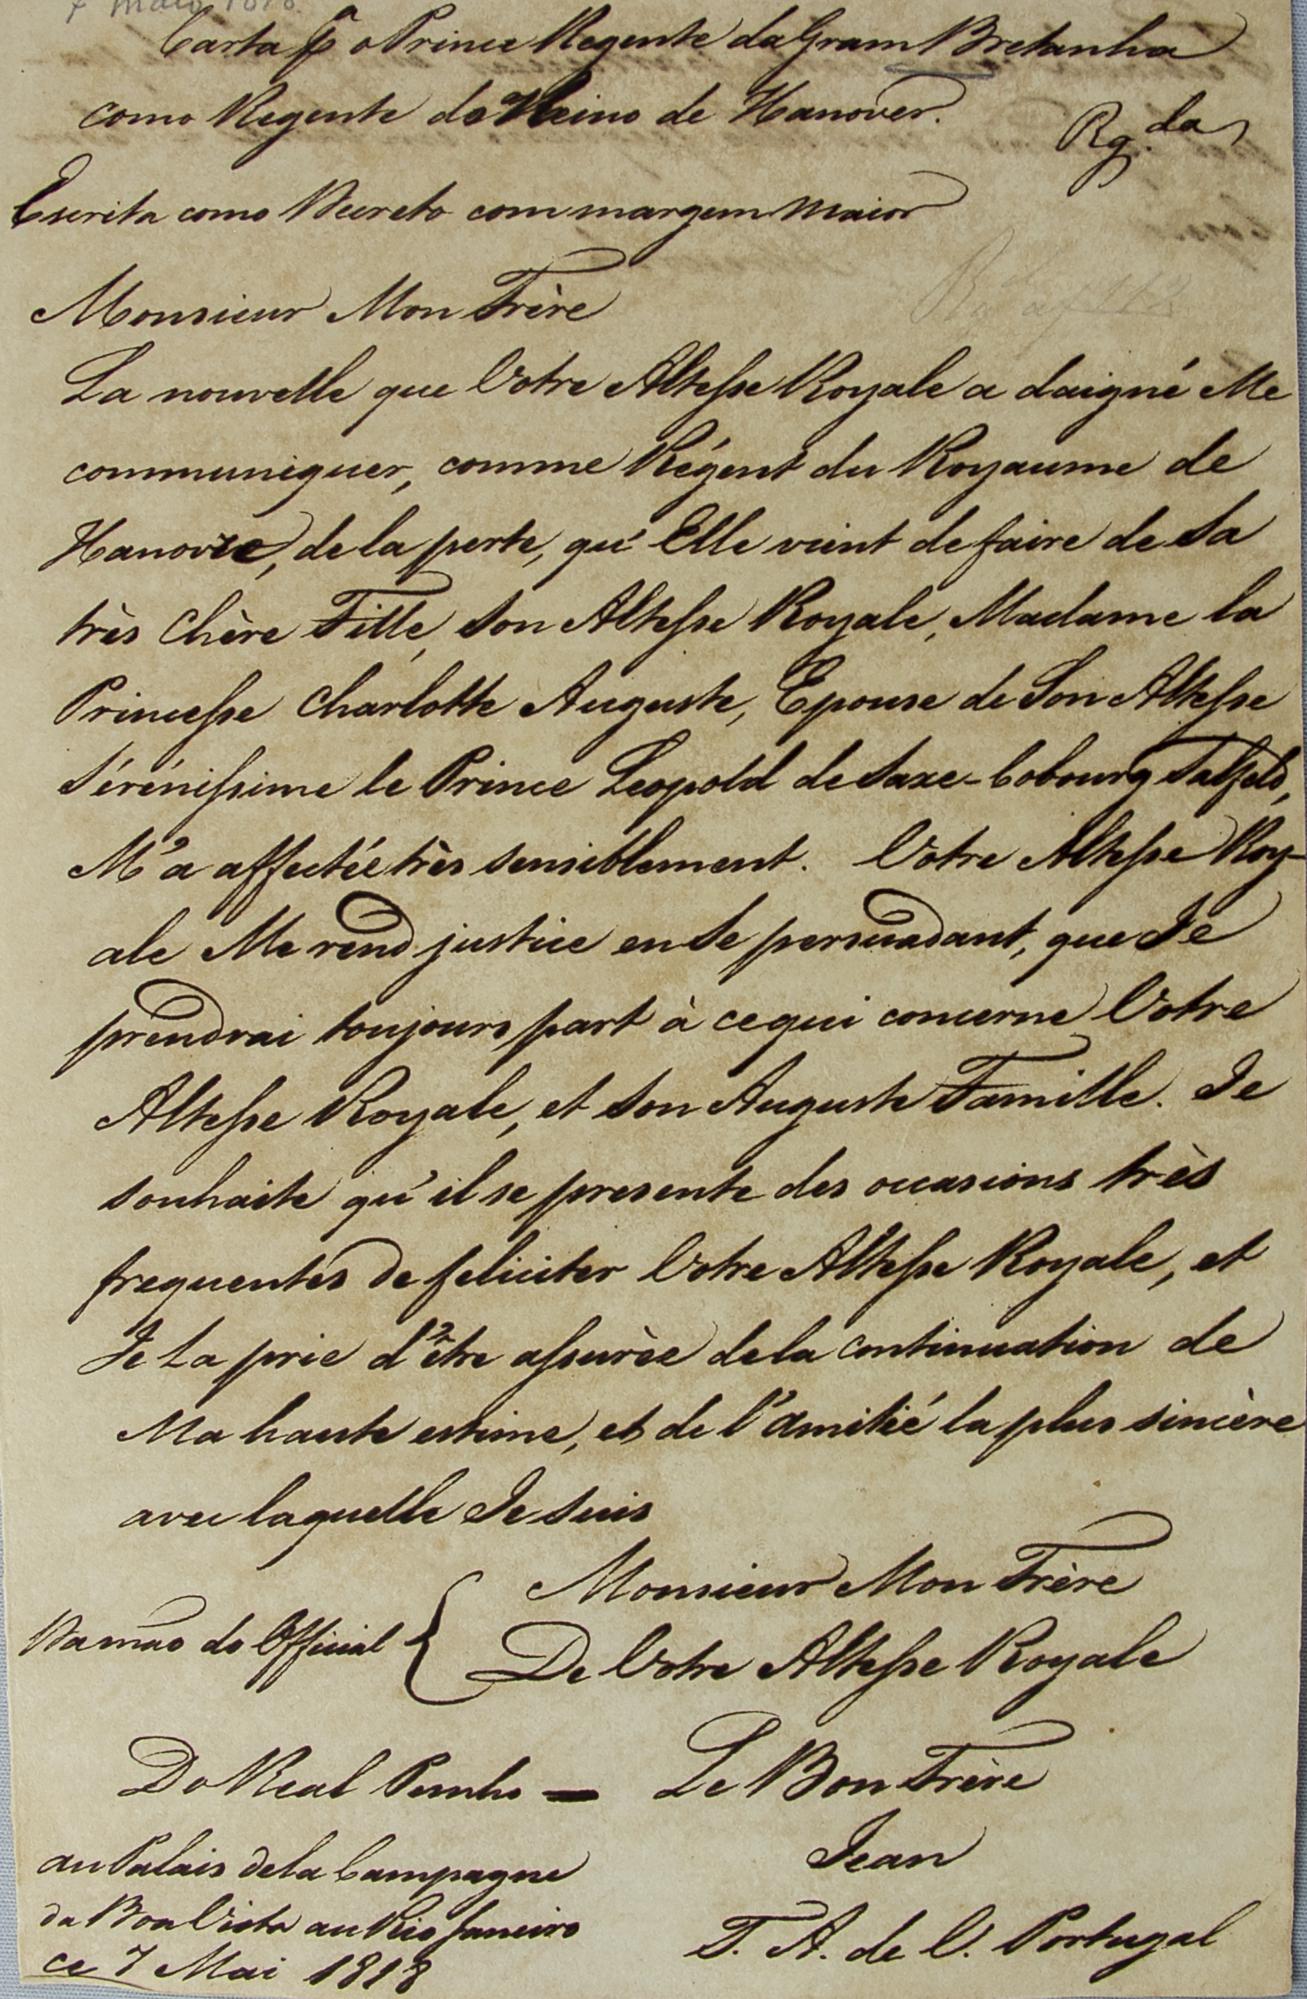 7 Maio 1818
Carta pª o Princ̃e Regente da Gram Bretanha
como Regente do Reino de Hanover.
Rg.da
Escrita como Decreto com margem maior
Monsieur Mon Frère
La nouvelle que Votre Altesse Royale a daigné Me
communiquer, comme Régent du Royaume de
Hanovre, de la perte, qu'Elle vient de faire de Sa
très Chère Fille, Son Altesse Royale, Madame la
Princesse Charlotte Auguste, Epouse de Son Altesse
Sérénissime le Prince Leopold de Saxe-Cobourg Salfeld,
M'a affectée très sensiblement. Votre Altesse Roy-
ale Me rend justice en Se persuadant, que Je
prendrai toujours part à ce qui concerne Votre
Altesse Royale, et Son Auguste Famille. Je
souhaite qu'il se presente des occasions très
frequentes de feliciter Votre Altesse Royale, et
Je La prie d'être assurèe de la continuation de
Ma haute estime, et de l'amitié la plus sincère
avec laquelle Je Suis
Monsieur Mon Frère
Da mão do Official { De Votre Altesse Royale
Do Real Punho = Le Bon Frère
Jean
au Palais de la Campagne
da Boa Vista au Rio Janeiro
ce 7 Mai 1818
T. A. de V. Portugal